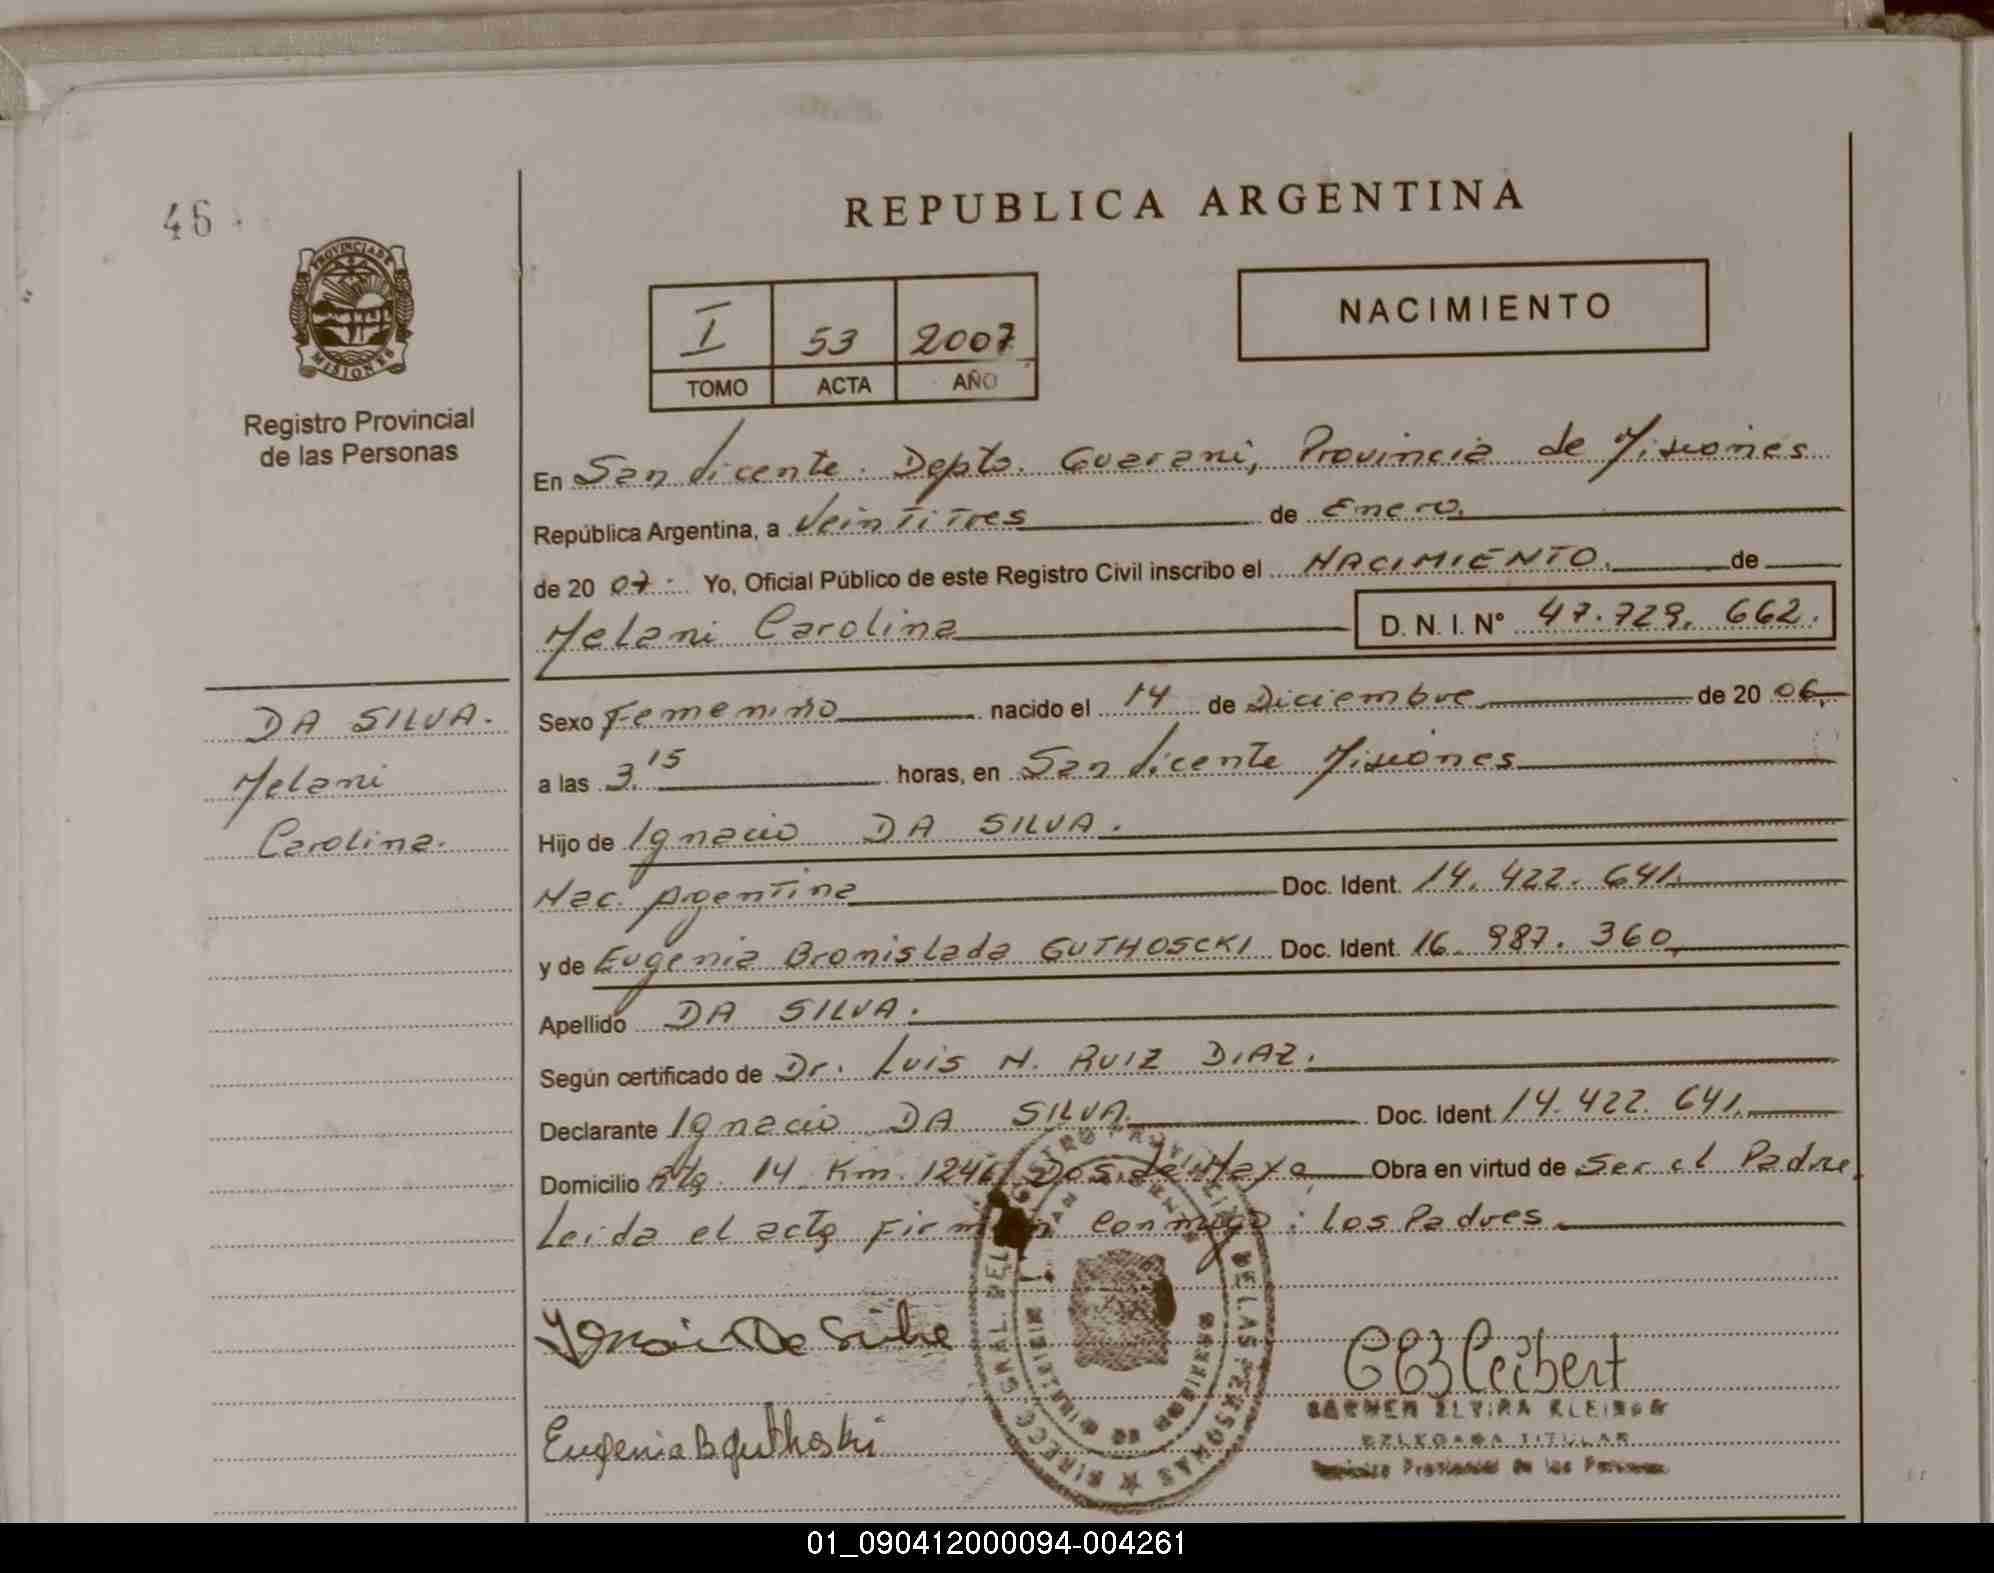 46
REPUBLICA ARGENTINA
PROVINCIA DE
MISIONES
Registro Provincial
de las Personas
I 53 2007
TOMO ACTA AÑO
NACIMIENTO
En San Vicente. Depto. Guarani, Provincia de Misiones
República Argentina, a Veintitres de Enero.
de 20 07. Yo, Oficial Público de este Registro Civil inscribo el NACIMIENTO. de
Melani Carolina D. N. I. N° 47.729.662.
DA SILVA.
Melani
Carolina.
Sexo Femenino nacido el 14 de Diciembre de 20 06.
a las 3.15 horas, en San Vicente Misiones
Hijo de Ignacio DA SILVA.
Nac. Argentina Doc. Ident. 14.422.641.
y de Eugenia Bronislada GUTHOSCKI Doc. Ident. 16.987.360
Apellido DA SILVA.
Según certificado de Dr. Luis N. RUIZ DIAZ.
Declarante Ignacio DA SILVA. Doc. Ident. 14.422.641.
Domicilio Rta. 14 Km. 1246 Dos de Mayo Obra en virtud de Ser el Padre.
Leida el acta firman conmigo: Los Padres.
Eugenia B guthoski
CARMEN ELVIRA
DELEGADA TITULAR
Registro Provincial de las Personas
01_090412000094-004261